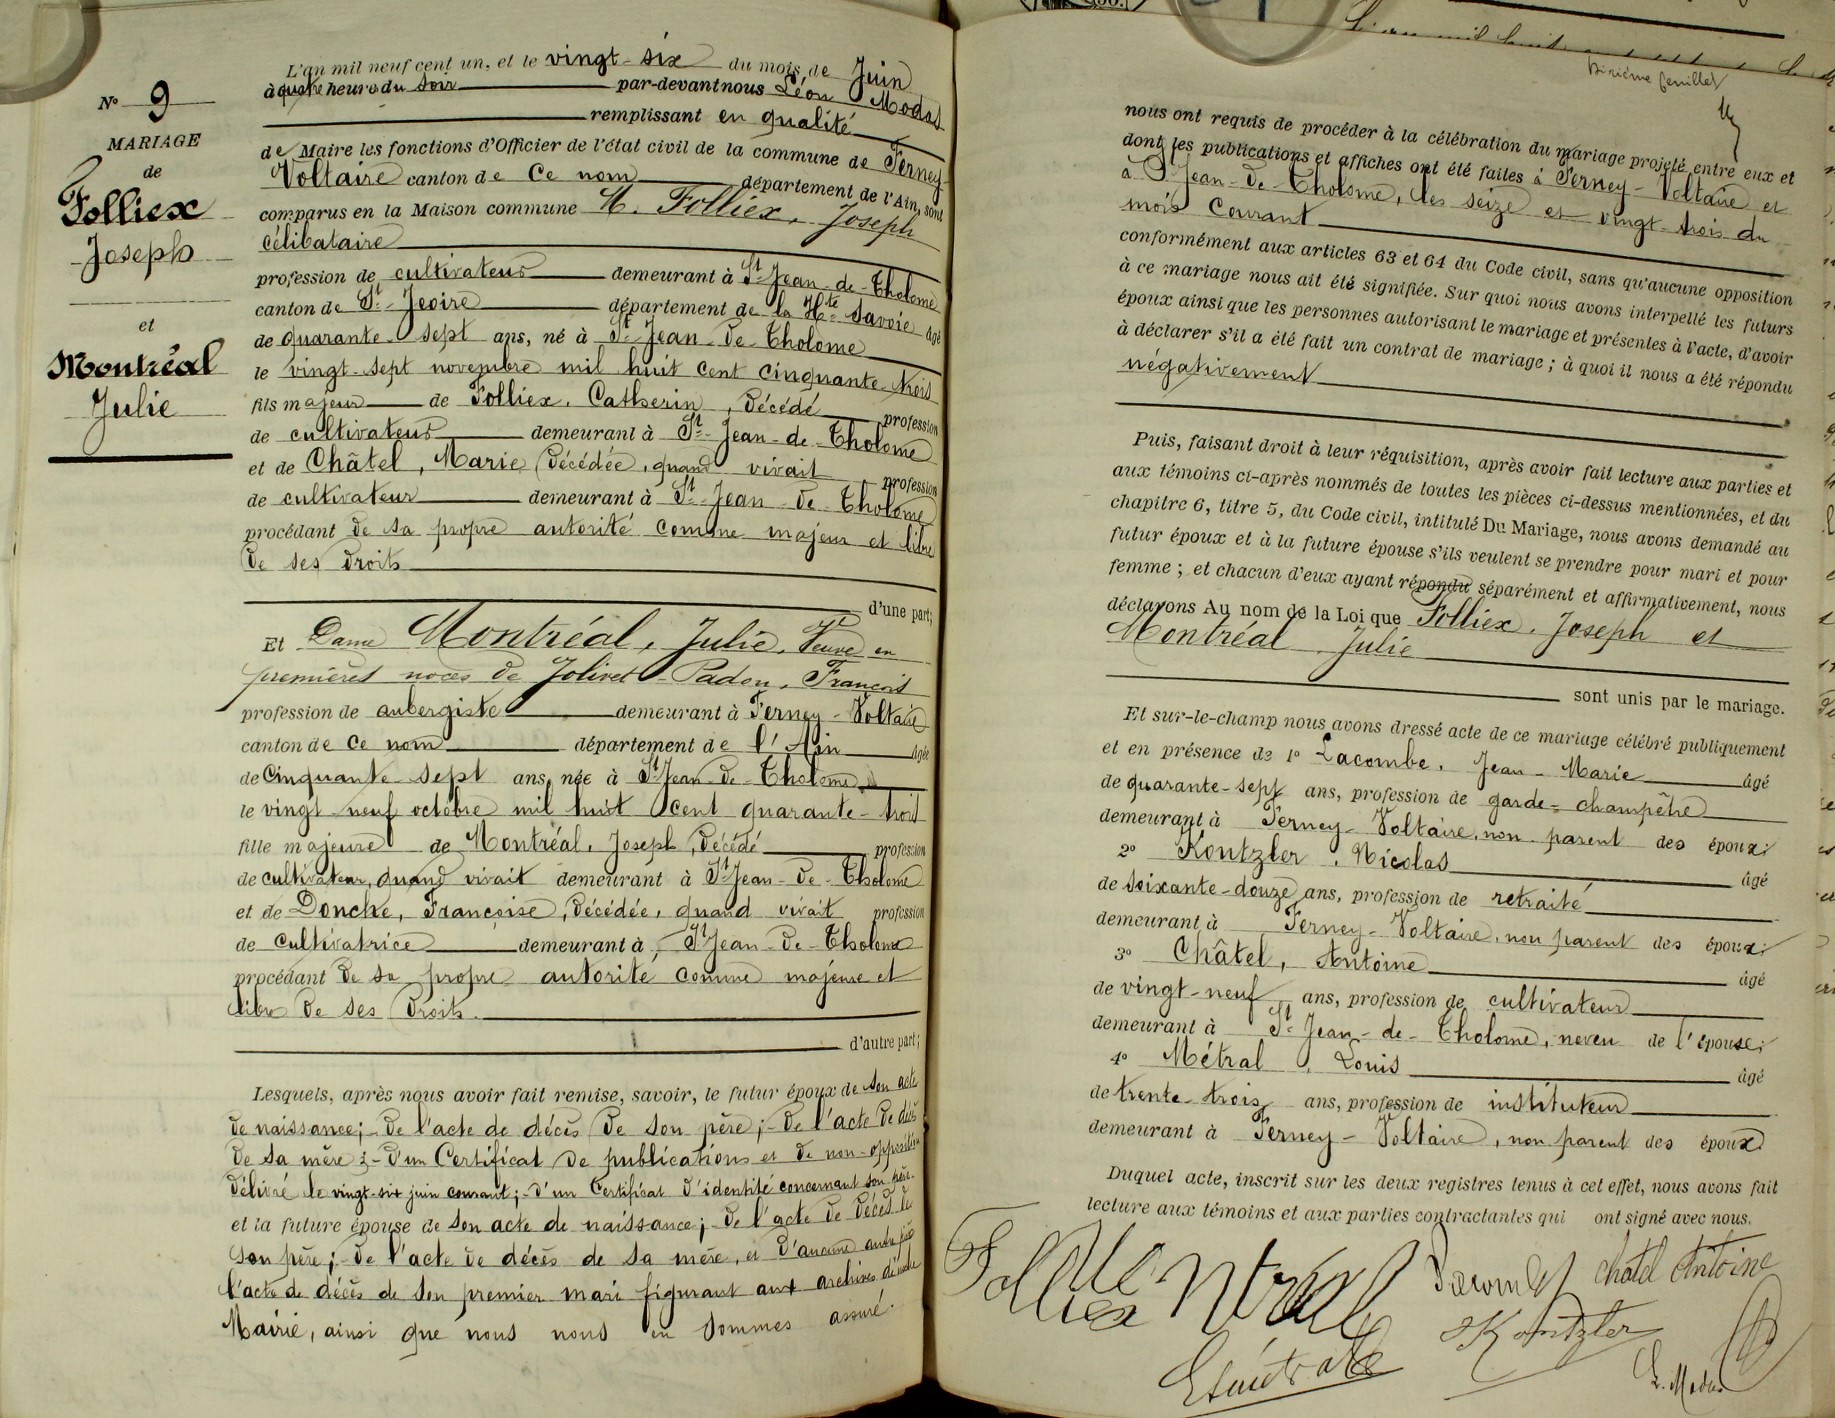 N° 9
MARIAGE
de
Folliex
Joseph
et
Montréal
Julie
L'an mil neuf cent un, et le vingt-six du mois de Juin
à quatre heures du soir par-devant nous Léon Modas
remplissant en qualité
de Maire les fonctions d'Officier de l'état civil de la commune de Ferney-
Voltaire canton de Ce nom département de l'Ain, sont
comparus en la Maison commune M. Folliex, Joseph
célibataire
profession de cultivateur demeurant à St-Jean-de-Tholome
canton de St-Jeoire département de la Hte Savoie âgé
de quarante-sept ans, né à St-Jean-de-Tholome
le vingt-sept novembre mil huit cent cinquante-trois
fils majeur de Folliex, Catherin, décédé profession
de cultivateur demeurant à St-Jean-de-Tholome
et de Châtel, Marie décédée, quand vivait profession
de cultivateur demeurant à St-Jean-de-Tholome
procédant de sa propre autorité comme majeur et libre
de ses droits
d'une part;
Et Dame Montréal, Julie, Veuve en
premières noces de Jolivet-Padon, François
profession de aubergiste demeurant à Ferney-Voltaire
canton de Ce nom département de l'Ain âgée
de Cinquante-sept ans, née à St-Jean-de-Tholome
le vingt-neuf octobre mil huit cent quarante-trois
fille majeure de Montréal, Joseph, décédé profession
de cultivateur, quand vivait demeurant à St-Jean-de-Tholome
et de Donche, Françoise, décédée, quand vivait profession
de cultivatrice demeurant à St-Jean-de-Tholome
procédant de sa propre autorité comme majeure et
libre de ses droits.
d'autre part;
Lesquels, après nous avoir fait remise, savoir, le futur époux de son acte
de naissance;- de l'acte de décès de son père;- de l'acte de décès
de sa mère;- d'un Certificat de publications et de non-opposition
délivré le vingt-six juin courant;- d'un Certificat d'identité concernant son père.
et la future épouse de son acte de naissance;- de l'acte de décès de
son père;- de l'acte de décès de sa mère, et d'aucune autre pièce
l'acte de décès de son premier mari figurant aux archives de notre
Mairie, ainsi que nous nous en sommes assuré.
Dixième feuillet
nous ont requis de procéder à la célébration du mariage projeté entre eux et
dont les publications et affiches ont été faites à Ferney-Voltaire et
à St-Jean-de-Tholome, les seize et vingt-trois du
mois Courant
conformément aux articles 63 et 64 du Code civil, sans qu'aucune opposition
à ce mariage nous ait été signifiée. Sur quoi nous avons interpellé les futurs
époux ainsi que les personnes autorisant le mariage et présentes à l'acte, d'avoir
à déclarer s'il a été fait un contrat de mariage; à quoi il nous a été répondu
négativement
Puis, faisant droit à leur réquisition, après avoir fait lecture aux parties et
aux témoins ci-après nommés de toutes les pièces ci-dessus mentionnées, et du
chapitre 6, titre 5, du Code civil, intitulé Du Mariage, nous avons demandé au
futur époux et à la future épouse s'ils veulent se prendre pour mari et pour
femme; et chacun d'eux ayant répondu séparément et affirmativement, nous
déclarons Au nom de la Loi que Folliex, Joseph et
Montréal Julie
sont unis par le mariage.
Et sur-le-champ nous avons dressé acte de ce mariage célébré publiquement
et en présence de 1° Lacombe, Jean-Marie âgé
de quarante-sept ans, profession de garde-champêtre
demeurant à Ferney-Voltaire, non parent des époux;
2° Kontzler, Nicolas âgé
de soixante-douze ans, profession de retraité
demeurant à Ferney-Voltaire, non parent des époux;
3° Châtel, Antoine âgé
de vingt-neuf ans, profession de cultivateur
demeurant à St-Jean-de-Tholome, neveu de l'épouse;
4° Métral, Louis âgé
de trente-trois ans, profession de instituteur
demeurant à Ferney-Voltaire, non parent des époux
Duquel acte, inscrit sur les deux registres tenus à cet effet, nous avons fait
lecture aux témoins et aux parties contractantes qui ont signé avec nous.
Folliex
Lacombe
Châtel Antoine
Kontzler
L. Modas